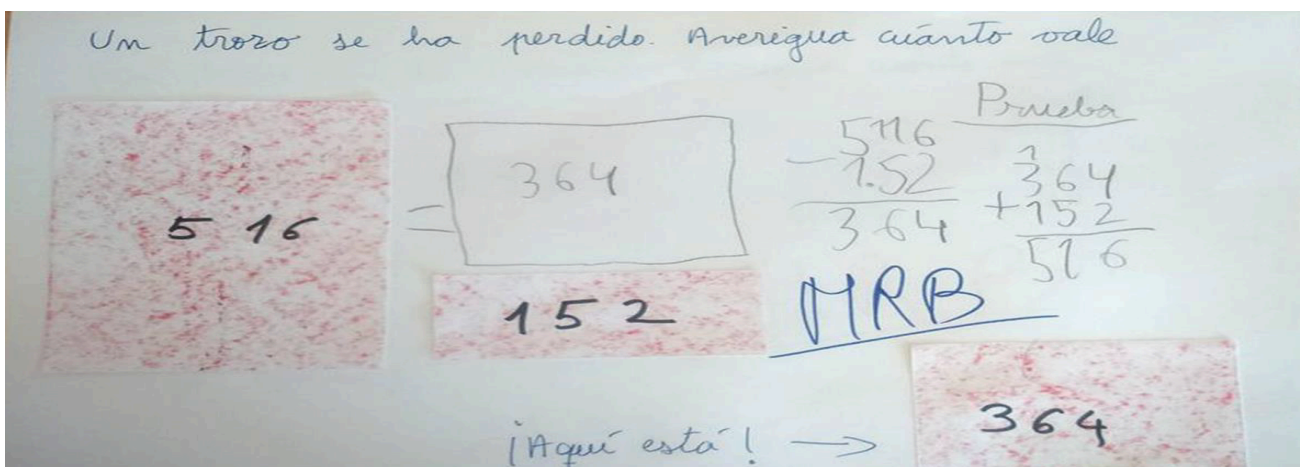 Un trozo se ha perdido. Averigua cuánto vale
516
=
364
152
5116
- 1.52
364
Prueba
1
364
+152
516
MRB
¡Aquí está! →
364